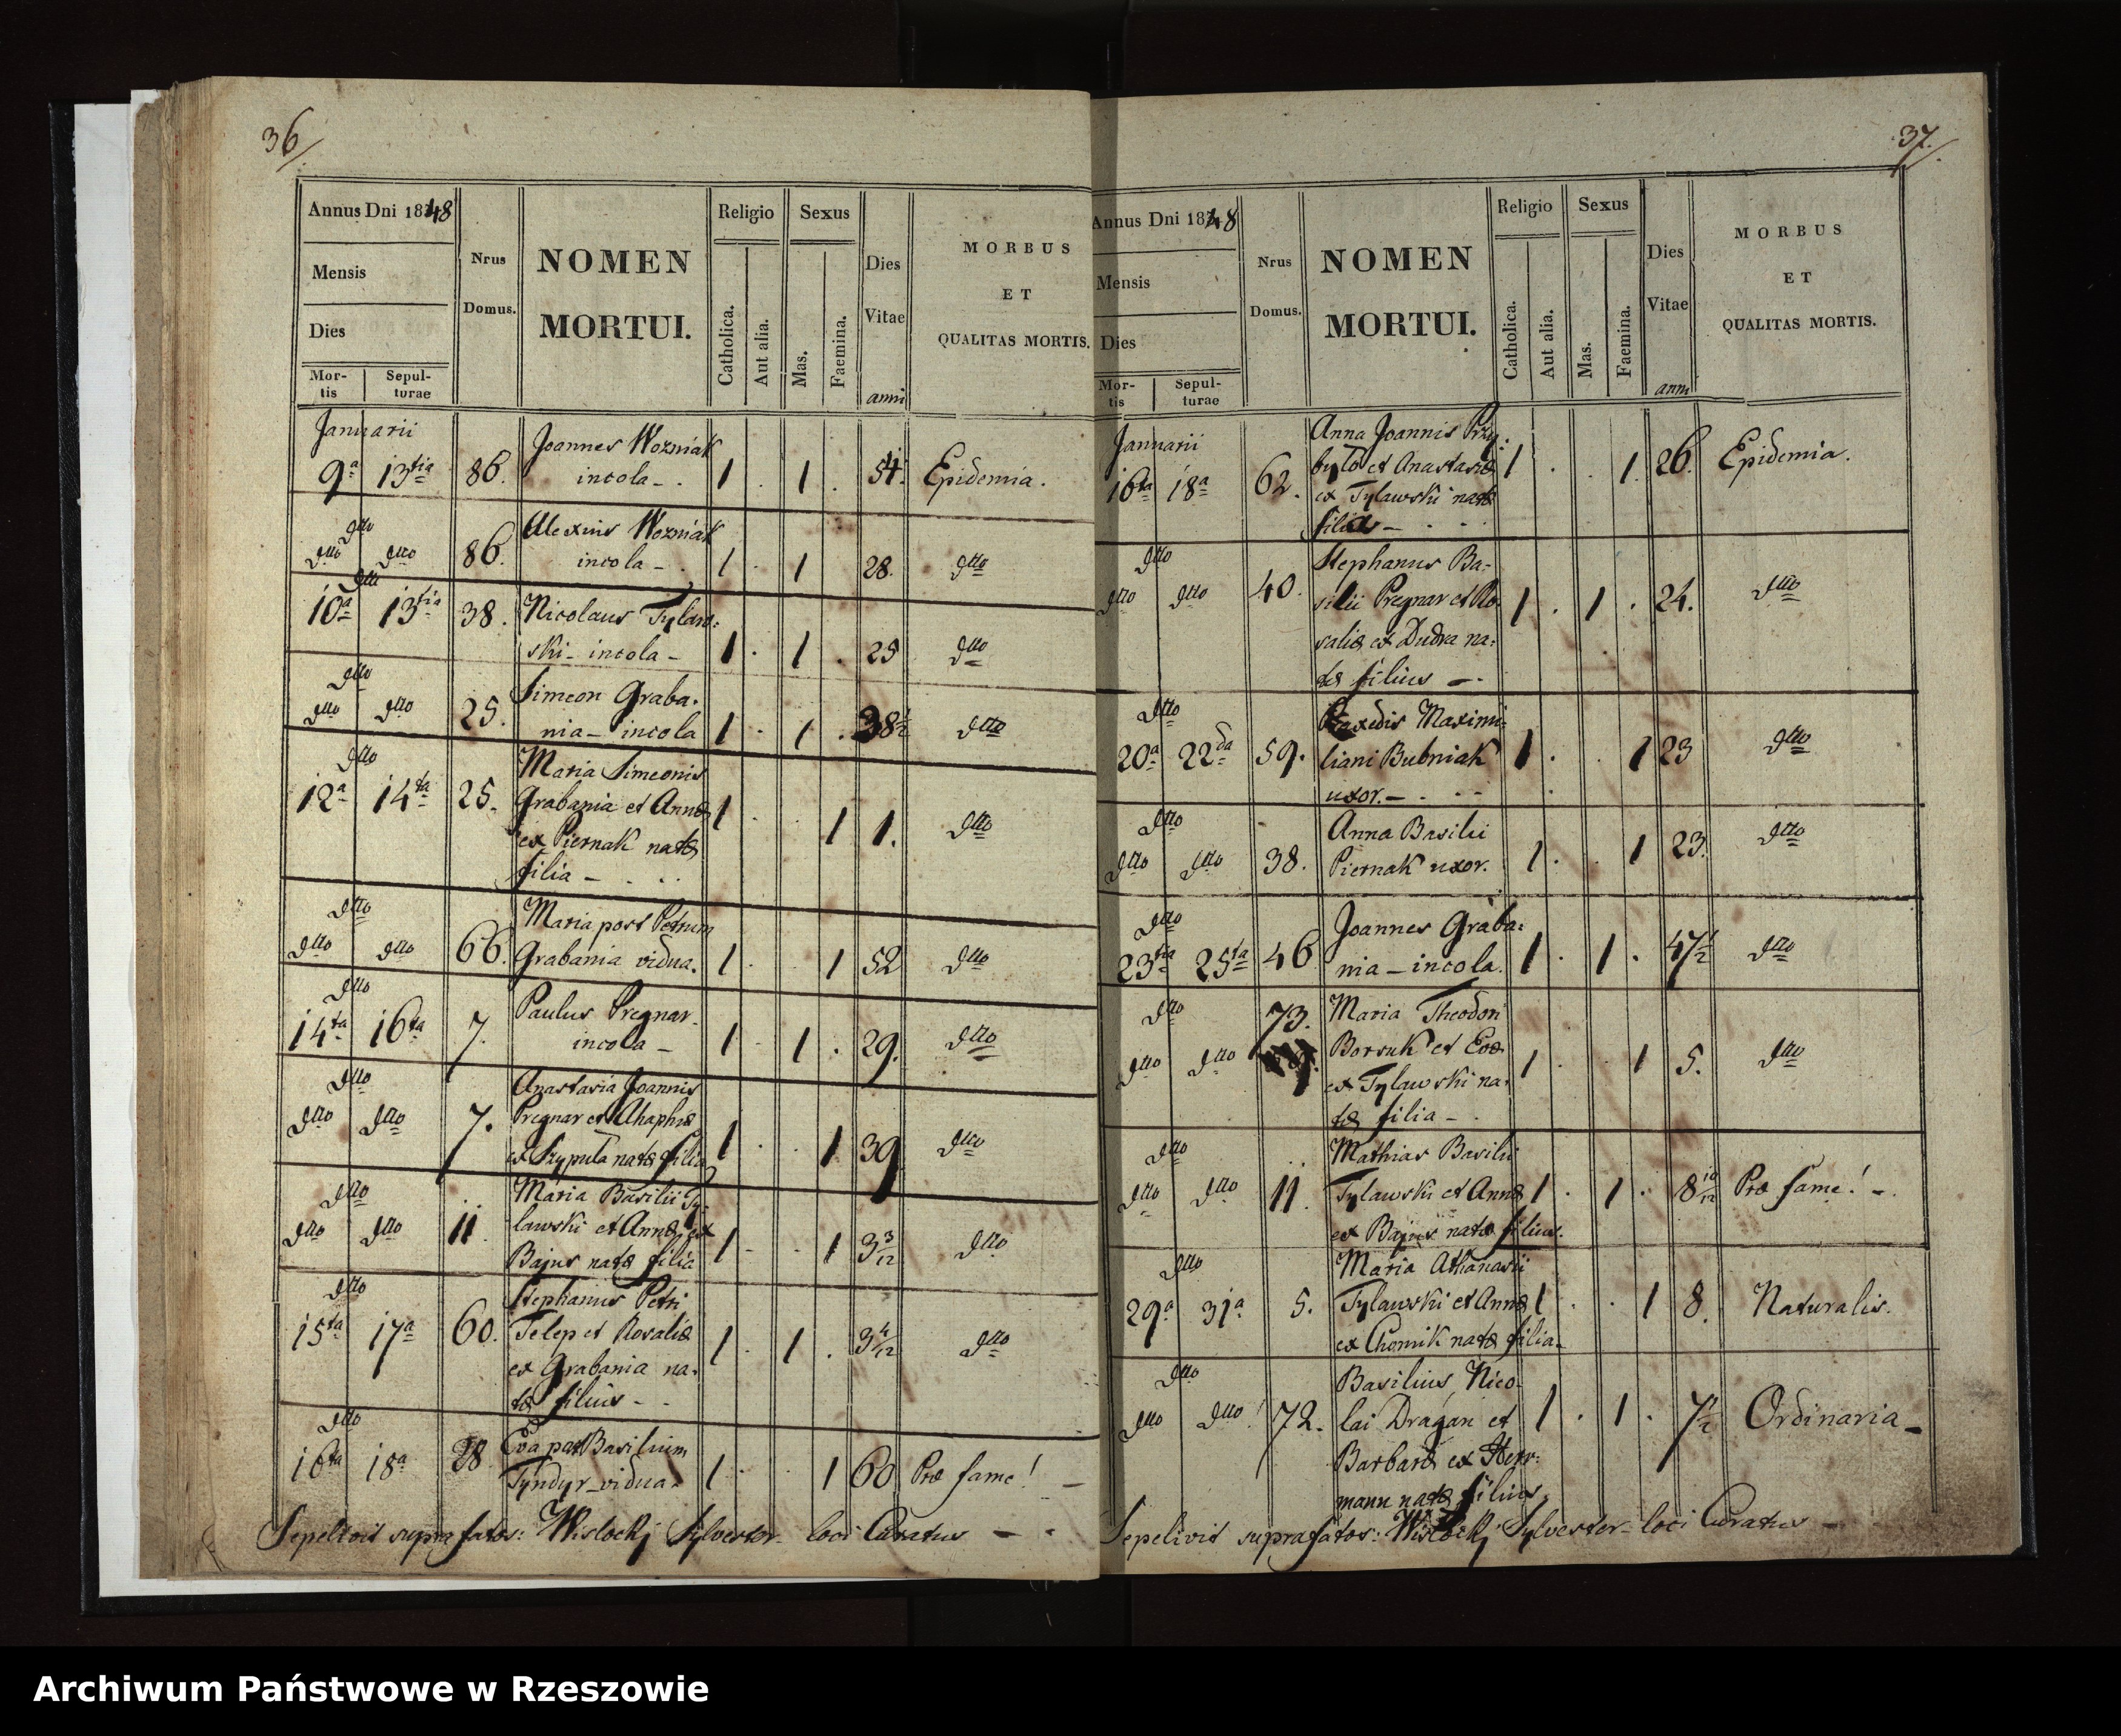 36
Annus Dni 1848
Mensis
Dies
Mor-
tis
Sepul-
turae
Nrus
Domus.
NOMEN
MORTUI.
Religio
Catholica.
Aut alia.
Sexus
Mas.
Faemina.
Dies
Vitae
anni
MORBUS
ET
QUALITAS MORTIS.
Januarii
9a 13tia 86. Joannes Wozniak
incola - . 1 . 1 . 54. Epidemia.
Dtto
Dtto Dtto 86. Alexius Wozniak
incola - . 1 . 1 28. Dtto
Dtto
10a 13tia 38. Nicolaus Tylaw:
ski - incola - 1 . 1 . 25 Dtto
Dtto
Dtto Dtto 25. Simeon Graba-
nia - incola 1 . 1 . 38½ Dtto
Dtto
12a 14ta 25. Maria Simeonis
Grabania et Annæ
ex Piernak natæ
filia - . . . 1 . . 1 1. Dtto
Dtto
Dtto Dtto 66. Maria post Petrum
Grabania vidua. 1 . . 1 52 Dtto
Dtto
14ta 16ta 7. Paulus Pregnar.
incola - 1 . 1 . 29. Dtto
Dtto
Dtto Dtto 7. Anastasia Joannis
Pregnar et Ahaphiæ
ex Szypuła natæ filia 1 . . 1 39 Dtto
Dtto
Dtto Dtto 11 Maria Basilii Ty-
lawski et Annæ ex
Bajus natæ filia 1 . . 1 3 3/12 Dtto
Dtto
15ta 17a 60. Stephanus Petri
Telep et Rosaliæ
ex Grabania na-
tæ filius - - 1 . 1 . 3 4/12 Dtto
Dtto
16ta 18a 28 Eva post Basilium
Tyndyr vidua - 1 . . 1 60 Præ fame! -
Sepelivit suprafatos: Wislockj Sylvester - loci Curatus - -
37.
Annus Dni 1848
Mensis
Dies
Mor-
tis
Sepul-
turae
Nrus
Domus.
NOMEN
MORTUI.
Religio
Catholica.
Aut alia.
Sexus
Mas.
Faemina.
Dies
Vitae
anni
MORBUS
ET
QUALITAS MORTIS.
Januarii
16ta 18a 62. Anna Joannis Przy-
było et Anastasiæ
ex Tylawski natæ
filia - . . . 1 . . 1. 26. Epidemia.
Dtto
Dtto Dtto 40. Stephanus Ba-
silii Pregnar et Ro-
saliæ ex Dudra na-
tæ filius - . 1 . 1 . 24. Dtto
Dtto
20a 22da 59. Praxedis Maximi-
liani Bubniak
uxor. - . - - 1 . . 1 23 Dtto
Dtto
Dtto Dtto 38. Anna Basilii
Piernak uxor. 1 . . 1 23. Dtto
Dtto
23tia 25ta 46 Joannes Graba-
nia - incola. 1 . 1 . 47½ Dtto
Dtto
Dtto Dtto 73. Maria Theodori
Borsuk et Evæ
ex Tylawski na-
tæ filia - . 1 . . 1 5. Dtto
Dtto
Dtto Dtto 11. Mathias Basilii
Tylawski et Annæ
ex Bajus natæ filius. 1 . 1 . 8 10/12 Præ fame! -.
Dtto
29a 31a 5. Maria Athanasii
Tylawski et Annæ
ex Chomik natæ filia - 1 . . 1 8. Naturalis.
Dtto
Dtto Dtto 72. Basilius Nico-
lai Dragan et
Barbaræ ex Herr-
mann natæ filius 1 . 1 . 7½ Ordinaria -
Sepelivit suprafatos: Wislockj Sylvester - loci Curatus -
Archiwum Państwowe w Rzeszowie